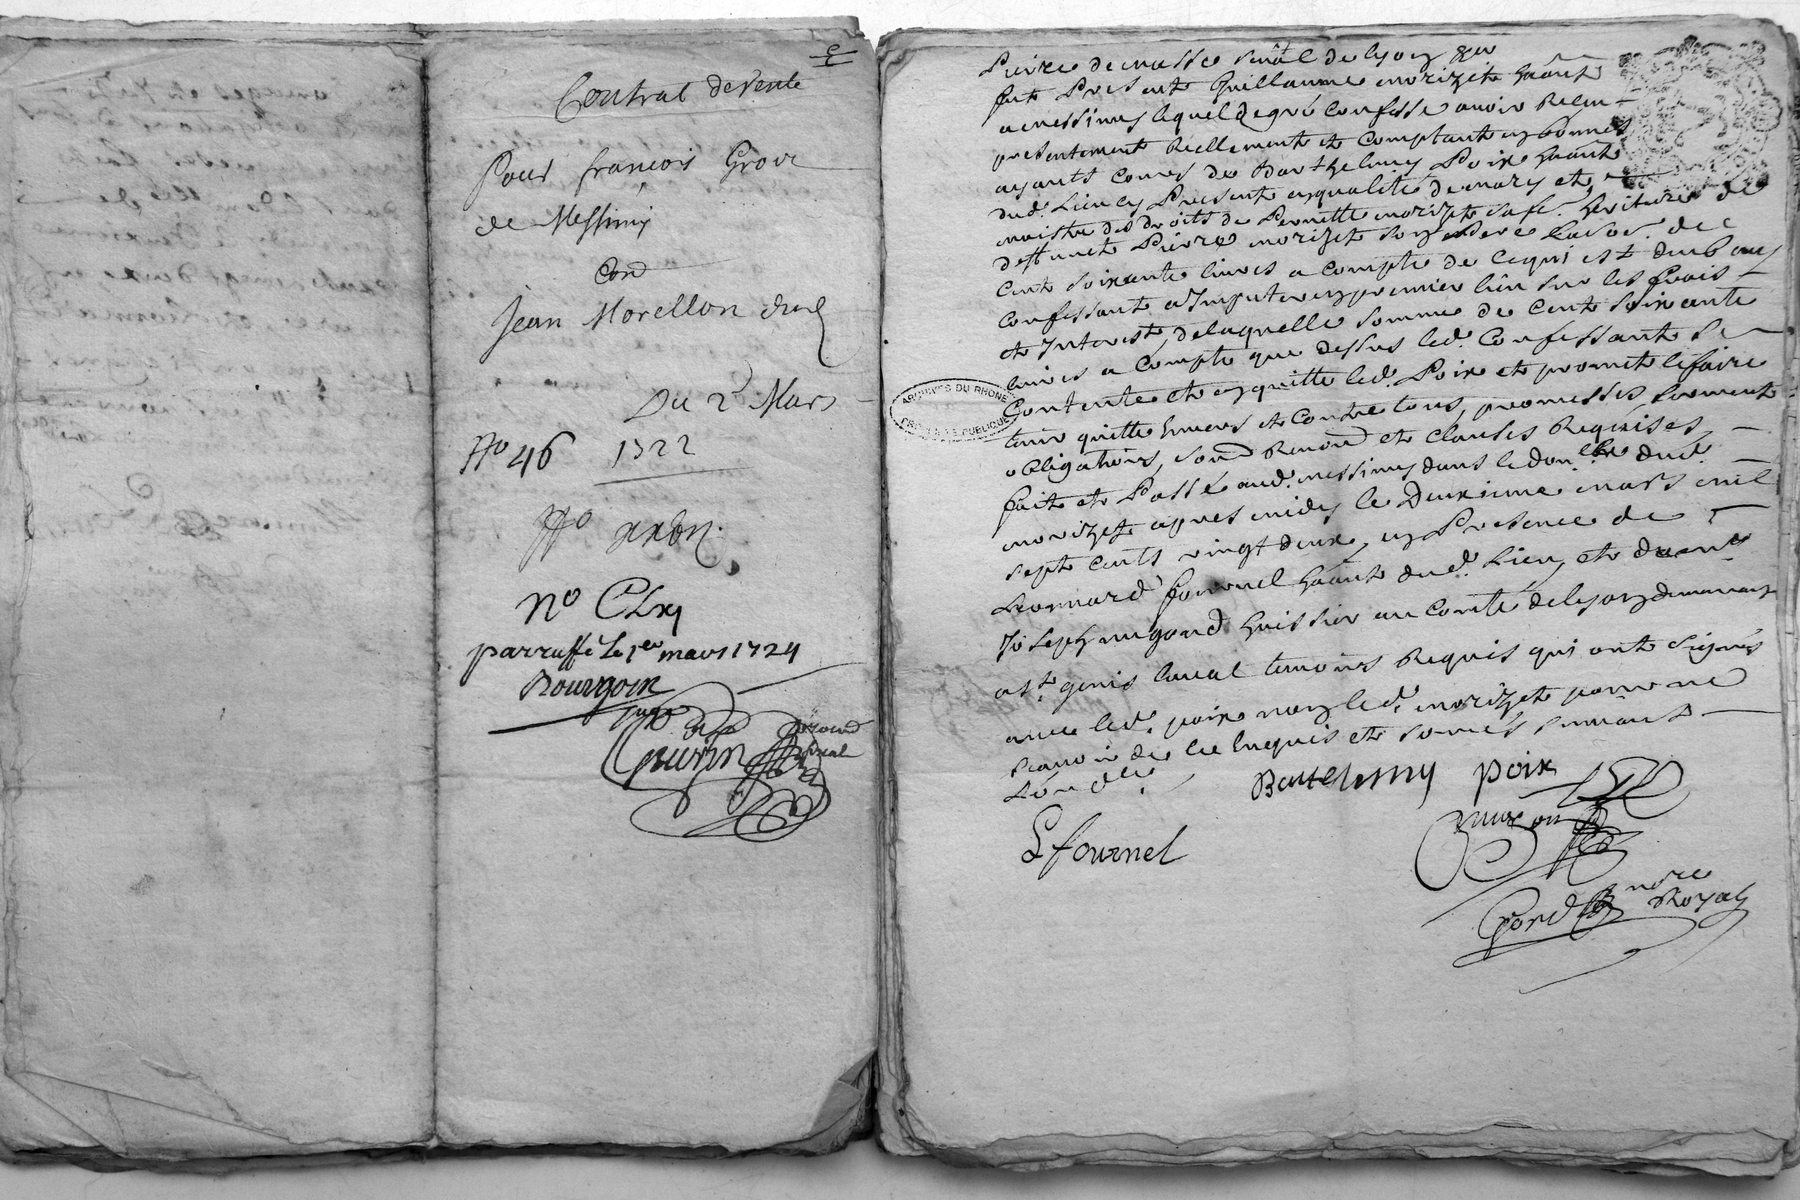 Contrat de vente
Pour françois Grove
de Messimy
Con
Jean Morellon dud
Du 2e Mars
No 46 1722
No
No CLxj
parraffé Le 1er mars 1724
Bourgoin
juge
Guerin
fiscal
Pierre de masse senal de lyon
fut Present Guillaume morizet habitant
a messimy lequel de gré confesse avoir Reçeu
presentement Reellement et Comptant en bonnes
ayants cours de Barthelemy Poix habitant
dud. Lieu cy Present en qualité de mary et
maistre des droits de Pernette morizet sa fe. heritiere de
deffunct Pierre morizet son Pere la so. de
Cent soixante livres a compte de ce qui est deub aud
Confessant a Imputer en premier lieu sur les frais
et Interest, de laquelle somme de Cent soixante
livres a Compte que dessus led. Confessant se
Contente et en quitte led. Poix et promet le faire
tenir quitte Envers et Contre tous, promesses, serment
obligations, soud Renond et clauses Requises
fait et Passé aud. messimy dans le dom.lle dud.
morizet apres midy le Deuxieme mars mil
sept cents vingt deux, en Presence de
Leonnard fournel habitant dud. Lieu, et de me
Joseph mugond huissier au Comté de Lyon demeurant
a ste. genis laval temoins Requis qui ont signés
avec led. poix non led. morizet pour ne
scavoir de ce Enquis et somés suivant
L'ordce.
Bartelemy poix
L fournel
nore
Royal
ARCHIVES DU RHONE